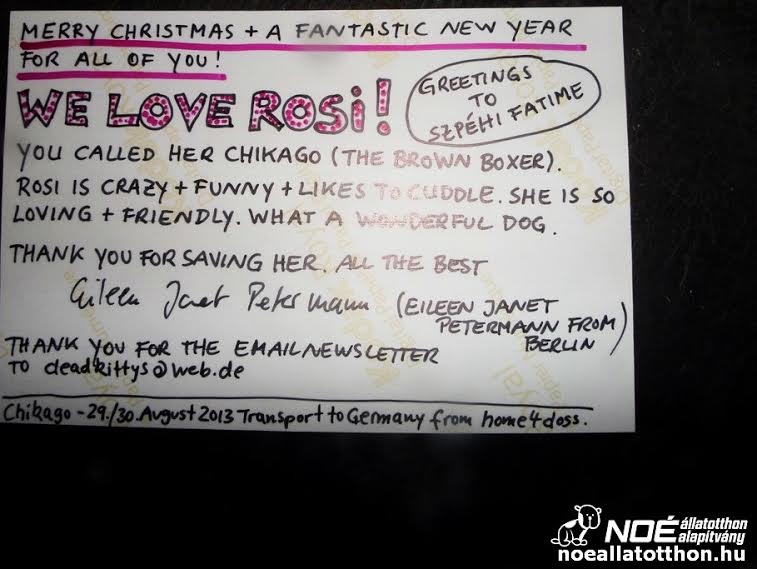 MERRY CHRISTMAS + A FANTASTIC NEW YEAR
FOR ALL OF YOU!
WE LOVE ROSi!
GREETINGS
TO
SZPÉHI FATIME
YOU CALLED HER CHIKAGO (THE BROWN BOXER).
ROSI IS CRAZY + FUNNY + LIKES TO CUDDLE. SHE IS SO
LOVING + FRIENDLY. WHAT A WONDERFUL DOG.
THANK YOU FOR SAVING HER. ALL THE BEST
Eileen Janet Petermann (EILEEN JANET
PETERMANN FROM
BERLIN)
THANK YOU FOR THE EMAILNEWSLETTER
TO deadkittys@web.de
Chikago - 29./30. August 2013 Transport to Germany from home4doss.
NOÉ állatotthon
alapítvány
noeallatotthon.hu